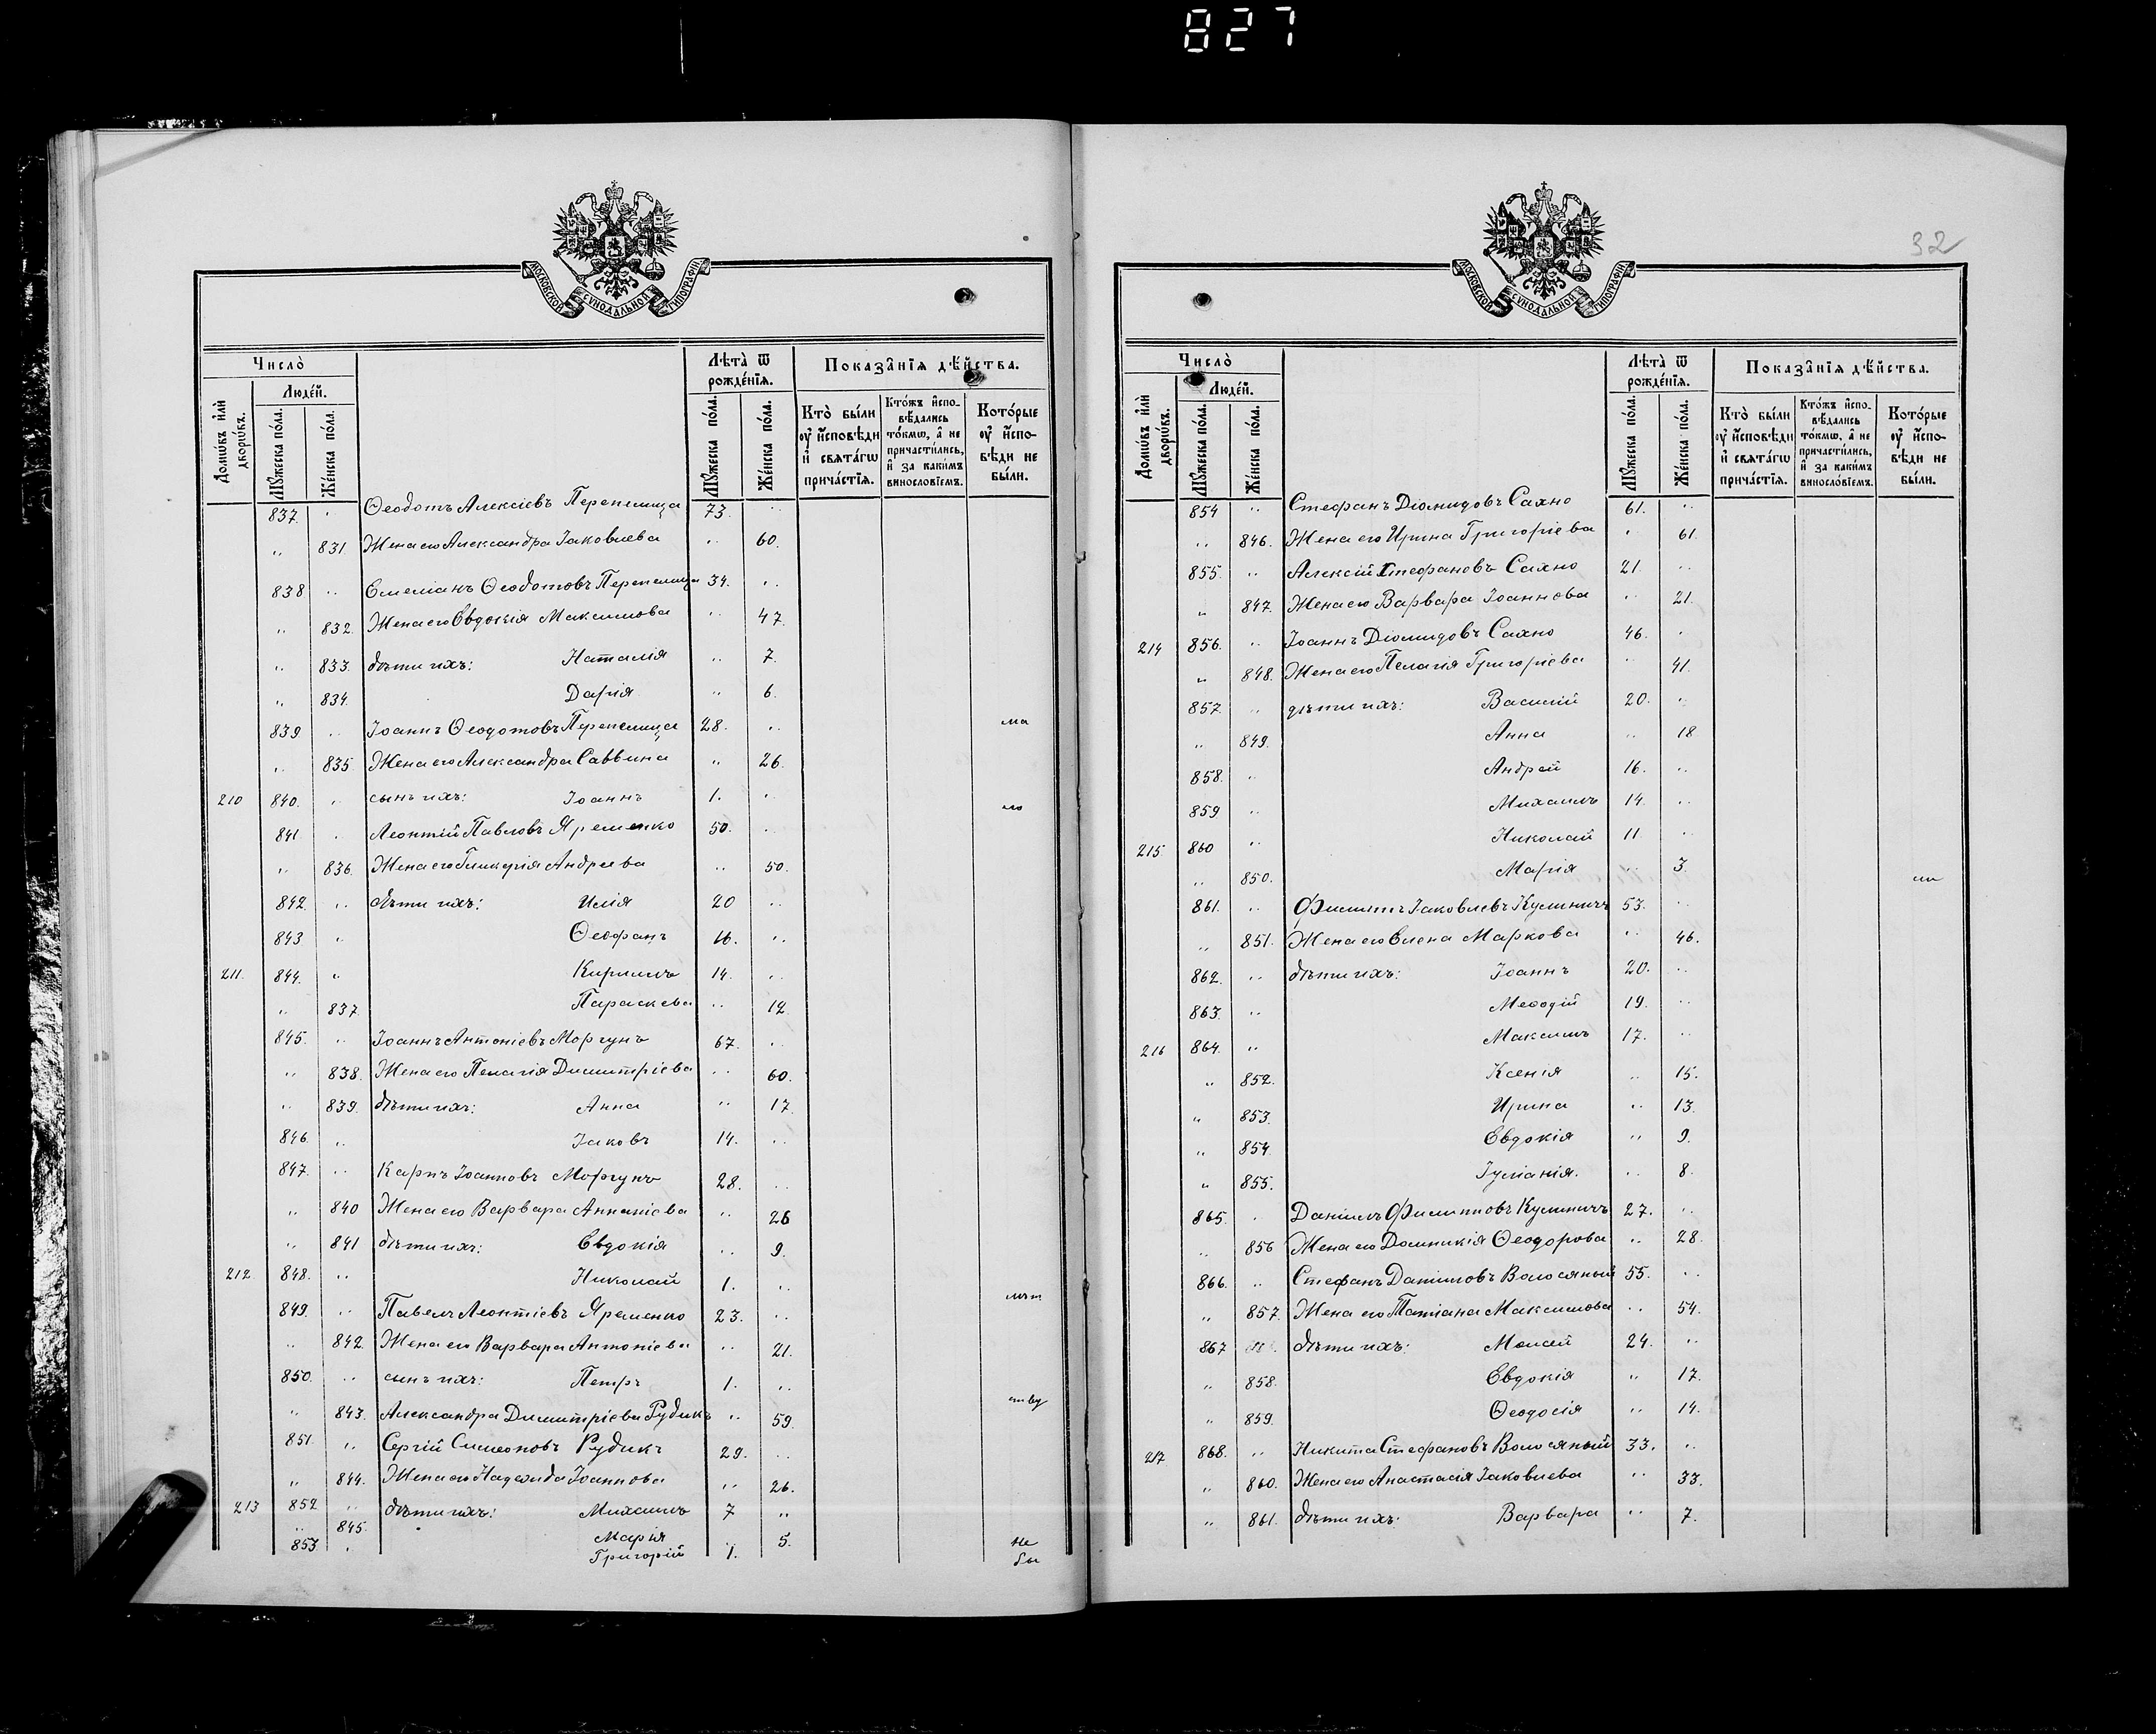 827
МОСКОВСКОЙ СѴНОДАЛЬНОЙ ТИПОГРАФІИ.
Число̀
Лѣта̀ ѿ рожде́нїѧ.
Показа̑нїѧ дѣ́йства.
Домѡ́въ и҆лѝ дворѡ́въ.
Люде́й.
Мꙋ́жеска по́ла.
Же́нска по́ла.
Мꙋ́жеска по́ла.
Же́нска по́ла.
Кто̀ бы́ли ᲂу҆ и҆́сповѣди и҆ свѧта́гѡ прича́стїѧ.
Кто́жъ и҆сповѣ́дались то́кмѡ, а҆ не причасти́лись, и҆ за каки́мъ винослов́їемъ.
Кото́рые ᲂу҆ и҆́сповѣди не бы́ли.
837. " Ѳеодотъ Алексіевъ Перепелица 73. "
" 831. Жена его Александра Іаковлева " 60.
838 " Емеліанъ Ѳеодотовъ Перепелица 34. "
" 832. Жена его Евдокія Максимова " 47.
" 833. дѣти ихъ: Наталія " 7.
" 834. Дарія " 6.
839 " Іоаннъ Ѳеодотовъ Перепелица 28. "
" 835. Жена его Александра Саввина " 26.
210 840. " сынъ ихъ: Іоаннъ 1. "
841 " Леонтій Павловъ Яременко 50. "
" 836. Жена его Гликерія Андреева " 50.
842. " дѣти ихъ: Илія 20 "
843 " Ѳеофанъ 16. "
211. 844. " Кириллъ 14. "
" 837 Параскева " 12.
845. " Іоаннъ Антоніевъ Моргунъ 67. "
" 838. Жена его Пелагія Димитріева " 60.
" 839. дѣти ихъ: Анна " 17.
846. " Іаковъ 14. "
847. " Карпъ Іоанновъ Моргунъ 28. "
" 840 Жена его Варвара Ананіева " 26
" 841 дѣти ихъ: Евдокія " 9.
212. 848. " Николай 1. "
849. " Павелъ Леонтіевъ Яременко 23. "
" 842. Жена его Варвара Антоніева " 21.
850. " сынъ ихъ: Петръ 1. "
" 843. Александра Димитріева Рудикъ " 59.
851. " Сергій Симеоновъ Рудикъ 29. "
" 844. Жена его Надежда Іоаннова " 26.
213 852 " дѣти ихъ: Михаилъ 7 "
" 845. Марія " 5.
853. " Григорій 1.
не
бы
32
МОСКОВСКОЙ СѴНОДАЛЬНОЙ ТИПОГРАФІИ.
Число̀
Лѣта̀ ѿ рожде́нїѧ.
Показа̑нїѧ дѣ́йства.
Домѡ́въ и҆лѝ дворѡ́въ.
Люде́й.
Мꙋ́жеска по́ла.
Же́нска по́ла.
Мꙋ́жеска по́ла.
Же́нска по́ла.
Кто̀ бы́ли ᲂу҆ и҆́сповѣди и҆ свѧта́гѡ прича́стїѧ.
Кто́жъ и҆сповѣ́дались то́кмѡ, а҆ не причасти́лись, и҆ за каки́мъ винослов́їемъ.
Кото́рые ᲂу҆ и҆́сповѣди не бы́ли.
854 " Стефанъ Діомидовъ Сахно 61. "
" 846. Жена его Ирина Григоріева " 61.
855. " Алексій Стефановъ Сахно 21. "
" 847. Жена его Варвара Іоаннова " 21.
214 856. " Іоаннъ Діомидовъ Сахно 46. "
" 848. Жена его Пелагія Григоріева " 41.
857. " дѣти ихъ: Василій 20. "
" 849. Анна " 18
858. " Андрей 16. "
859 " Михаилъ 14. "
215. 860 " Николай 11 "
" 850. Марія " 3.
861. " Филиппъ Іаковлевъ Кулиничъ 53. "
" 851. Жена его Елена Маркова " 46.
862. " дѣти ихъ: Іоаннъ 20. "
863. " Меѳодій 19. "
216 864. " Максимъ 17. "
" 852. Ксенія " 15.
" 853. Ирина " 13.
" 854. Евдокія " 9.
" 855. Іуліанія. " 8.
865. " Даніилъ Филипповъ Кулиничъ 27. "
" 856 Жена его Домникія Ѳеодорова " 28.
866. " Стефанъ Даніиловъ Волосяный 55. "
" 857. Жена его Татіана Максимова " 54.
867 дѣти ихъ: Моисей 24. "
" 858. Евдокія " 17.
" 859. Ѳеодосія " 14.
217 868. " Никита Стефановъ Волосяный 33. "
" 860. Жена его Анастасія Іаковлева " 33.
" 861. дѣти ихъ: Варвара " 7.